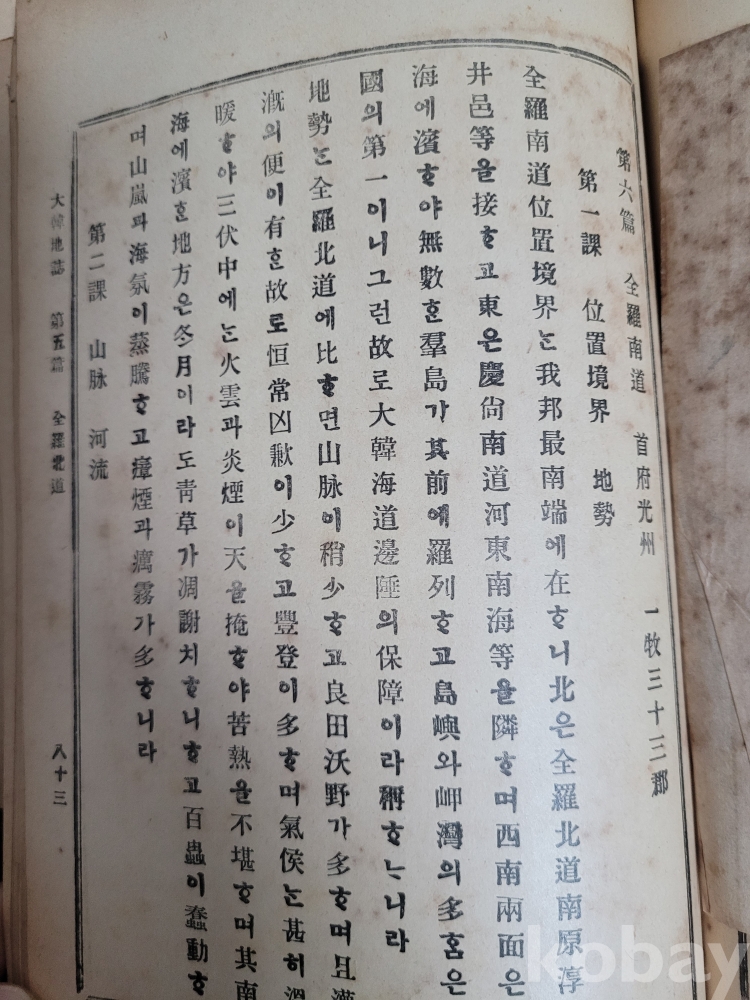 第六篇 全羅南道 首府光州 一牧三十三郡
第一課 位置境界 地勢
全羅南道位置境界ᄂᆞᆫ我邦最南端에在ᄒᆞ니北은全羅北道南原淳
井邑等을接ᄒᆞ고東은慶尙南道河東南海等을隣ᄒᆞ며西南兩面은
海에濱ᄒᆞ야無數ᄒᆞᆫ羣島가其前에羅列ᄒᆞ고島嶼와岬灣의多홈은
國의第一이니그런故로大韓海道邊陲의保障이라稱ᄒᆞᄂᆞ니라
地勢ᄂᆞᆫ全羅北道에比ᄒᆞ면山脉이稍少ᄒᆞ고良田沃野가多ᄒᆞ며且灌
漑의便이有ᄒᆞᆫ故로恒常凶歉이少ᄒᆞ고豐登이多ᄒᆞ며氣侯ᄂᆞᆫ甚히
暖ᄒᆞ야三伏中에ᄂᆞᆫ火雲과炎煙이天을掩ᄒᆞ야苦熱을不堪ᄒᆞ며其南
海에濱ᄒᆞᆫ地方은冬月이라도靑草가凋謝치ᄒᆞ니ᄒᆞ고百蟲이蠢動ᄒᆞ
며山嵐과海氛이蒸騰ᄒᆞ고瘴煙과癘霧가多ᄒᆞ니라
第二課 山脉 河流
大韓地誌 第五篇 全羅北道 八十三
kobay